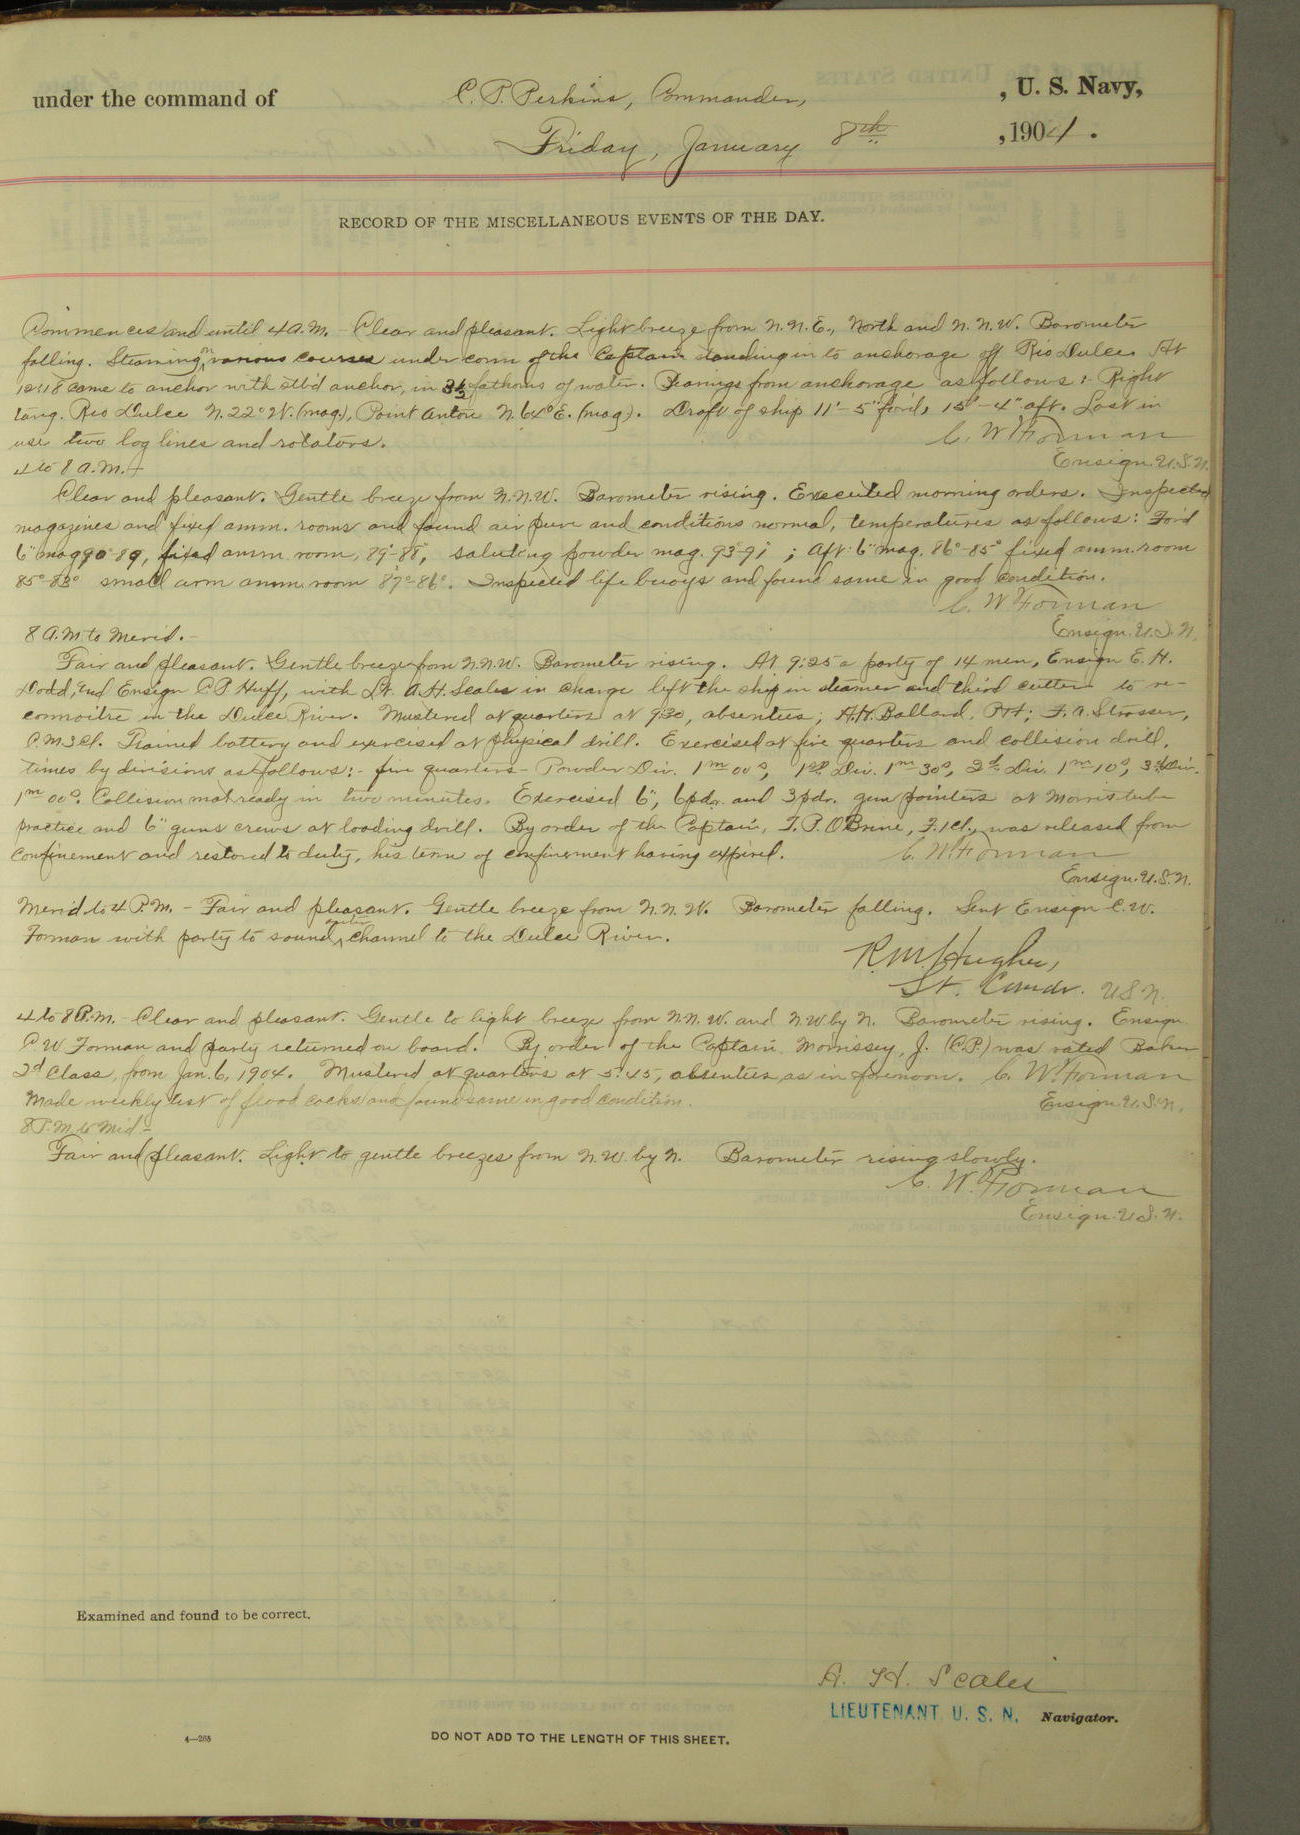 under the command of C. P. Perkins, Commander, , U. S. Navy,
Friday, January 8th , 1904.
RECORD OF THE MISCELLANEOUS EVENTS OF THE DAY.
Commences and until 4 A.M. - Clear and pleasant. Light breeze from N.N.E., North and N.N.W. Barometer
falling. Steaming on various courses under conn of the Captain standing in to anchorage off Rio Dulce. At
12:18 came to anchor with stb'd anchor, in 3½ fathoms of water. Bearings from anchorage as follows:- Right
tang. Rio Dulce N. 22° W. (mag.), Point N. 64° E. (mag). Draft of ship 11'-5" for'd, 15'-4" aft. Lost in
use two log lines and rotators. C. W. Forman
Ensign. U.S.N.
4 to 8 A.M.-
Clear and pleasant. Gentle breeze from N.N.W. Barometer rising. Executed morning orders. Inspected
magazines and fixed amm. rooms and found air pure and conditions normal, temperatures as follows: For'd
6" mag 90°-89, fixed amm room, 89°-88°, saluting powder mag. 93°-91°; Aft: 6" mag. 86°-85° fixed amm. room
85°-83° small arm amm. room 87°-86°. Inspected life buoys and found same in good condition.
C. W. Forman
Ensign. U.S.N.
8 A.M. to Merid.-
Fair and pleasant. Gentle breeze from N.N.W. Barometer rising. At 9:25 a party of 14 men, Ensign E. H.
Dodd, and Ensign C. P. Huff, with Lt. A. H. Scales in charge left the ship in steamer and third cutter to re-
connoitre in the Dulce River. Mustered at quarters at 9:30, absentees; A.H. Ballard, ; F. A. Strosser,
C.M. 3 Cl. Trained battery and exercised at physical drill. Exercised at fire quarters and collision drill,
times by divisions as follows:- fire quarters - Powder Div. 1m 00s, 1st Div. 1m 30s, 2d Div. 1m 10s, 3d Div.
1m 00s. Collision mat ready in two minutes. Exercised 6", 6 pdr. and 3 pdr. gun pointers at Morris tube
practice and 6" guns crews at loading drill. By order of the Captain, F. P. O'Brine, F. 1 Cl., was released from
confinement and restored to duty, his term of confinement having expired. C. W. Forman
Ensign. U.S.N.
Merid to 4 P.M. - Fair and pleasant. Gentle breeze from N.N.W. Barometer falling. Sent Ensign C. W.
Forman with party to sound outer channel to the Dulce River.
R. M. Hughes,
Lt. Comdr. U.S.N.
4 to 8 P.M. - Clear and pleasant. Gentle to light breeze from N.N.W. and N.W. by N. Barometer rising. Ensign
C. W. Forman and party returned on board. By order of the Captain Morrissey, J. (C.P.) was rated Baker
2d Class, from Jan. 6, 1904. Mustered at quarters at 5:45, absentees as in forenoon. C. W. Forman
Made weekly test of flood cocks and found same in good condition. Ensign. U.S.N.
8 P.M. to Mid:-
Fair and pleasant. Light to gentle breezes from N.W. by N. Barometer rising slowly.
C. W. Forman
Ensign. U.S.N.
Examined and found to be correct.
A. H. Scales
LIEUTENANT U. S. N. Navigator.
4—268
DO NOT ADD TO THE LENGTH OF THIS SHEET.